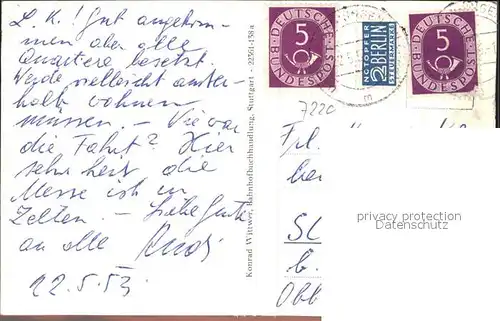 L. K.! Gut angekom-
men aber alle
Quartiere besetzt.
Werde vielleicht ausser-
halb wohnen
müssen – Wie war
die Fahrt? Hier
sehr heiss die
Messe ist in
Zelten. – Liebe Grüsse
an alle Rudi
22.5.53.
Konrad Wittwer, Bahnhofbuchhandlung, Stuttgart - 22561-158a
DEUTSCHE BUNDESPOST
5
NOTOPFER
2 BERLIN
STEUERMARKE
DEUTSCHE BUNDESPOST
5
7220
Frl.
privacy protection
Datenschutz
b.
Obb